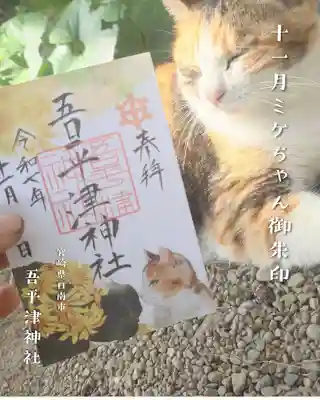 十一月ミケちゃん御朱印
奉拝
吾平津神社
令和七年
十一月 日
宮崎県日南市
吾平津神社